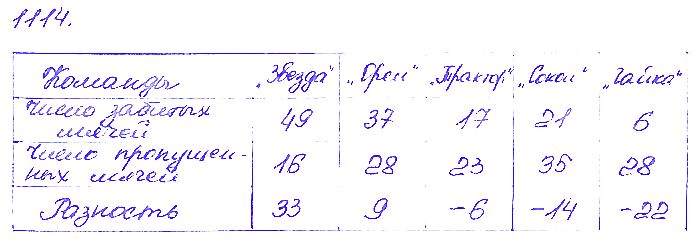 1114.
Команды „Звезда" „Орел" „Трактор" „Сокол" „Чайка"
Число забитых
мячей 49 37 17 21 6
Число пропущен-
ных мячей 16 28 23 35 28
Разность 33 9 -6 -14 -22